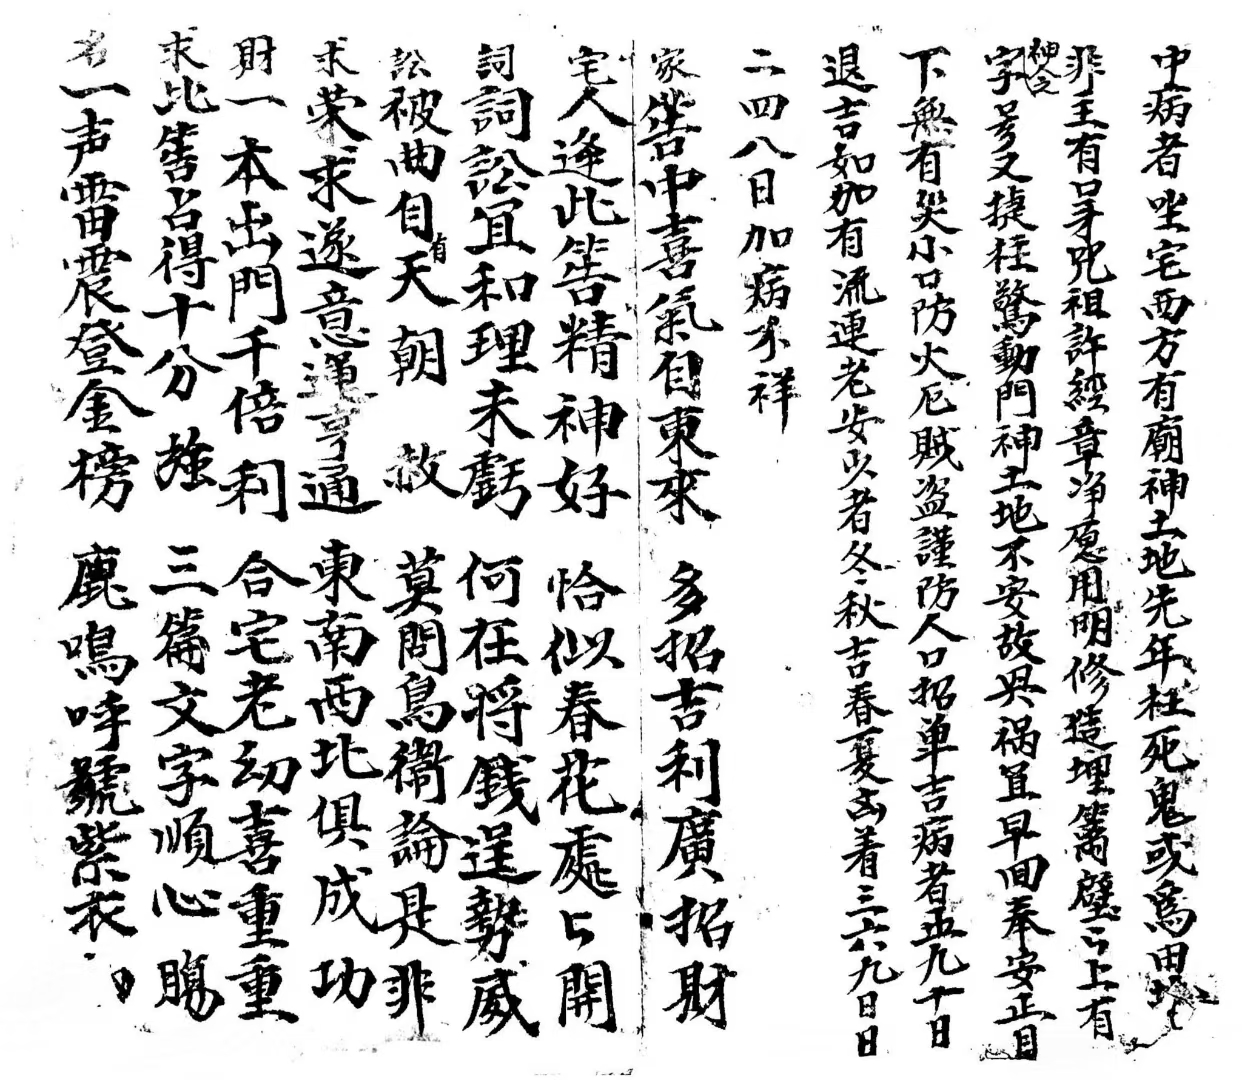 中病者坐宅西方有廟神土地先年枉死鬼或為田地
非王有口牙咒祖許經章净愿用明修造埋篱壁上有
神人之字号又撻柱驚動門神土地不安故具祸宜早回奉安正目
下無有災小口防火厄賊盗謹防人口招单吉病者五九十日
退吉如加有流連老安少者冬秋吉春夏凶着三六九日日
二四八日加病不祥
家 筶中喜氣自東來 多招吉利廣招財
宅 人逢此筶精神好 恰似春花處々開
詞 詞訟宜和理未虧 何在将錢逞勢威
訟 被曲自有天朝赦 莫問烏衙論是非
求 荣求遂意運亨通 東南西北俱成功
財 一本出門千倍利 合宅老幼喜重重
求 比筶占得十分雄 三篇文字順心賜
名 一声雷震登金榜 鹿鳴呼號紫衣